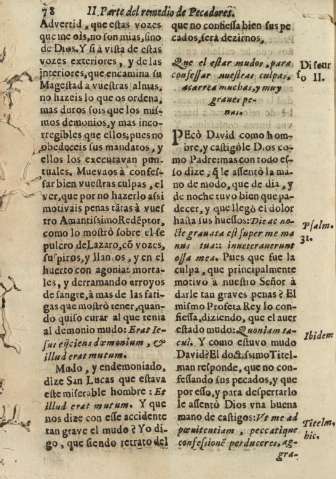 78 II. Parte del remedio de Pecadores.
Advertid, que estas vozes
que me ois, no son mias, sino
de Dios. Y si à vista de estas
vozes exteriores, y de las
interiores, que encamina su
Magestad à vuestras almas,
no hazeis lo que os ordena,
mas duros sois que los mis-
mos demonios, y mas inco-
rregibles que ellos; pues no
obedeceis sus mandatos, y
ellos los executavan pun-
tuales. Muevaos à confes-
sar bien vuestras culpas, el
ver, que por no hazerlo assi
motivais penas tãtas à vues-
tro Amantissimo Redẽptor,
como lo mostrò sobre el se-
pulcro de Lazaro, cõ vozes,
suspiros, y llan-os, y en el
huerto con agonias morta-
les, y derramando arroyos
de sangre, à mas de las fati-
gas que mostrò tener, quan-
do quiso curar al que tenia
al demonio mudo: Erat Je-
sus eijciens dæmonium, &
illud erat mutum.
Mudo, y endemoniado,
dize San Lucas que estava
este miserable hombre: Et
illud erat mutum. Y que
nos dize con esse accidente
tan grave el mudo? Yo di-
go, que siendo retrato del
que no confiessa bien sus pe
cados, serà dezirnos,
Que el estar mudos, para
confessar nuestras culpas,
acarrea muchas, y muy
graves pe-
nas.
Discur
so II.
PEcò David como hom-
bre, y castigòle Dios co-
mo Padre: mas con todo es-
so dize, q̃ le assentò la ma-
no de modo, que de dia, y
de noche tuvo bien que pa-
decer, y que llegò el dolor
hasta sus huessos: Die ac no-
cte gravata est super me ma
nus tua: inveteraverunt
ossa mea. Pues que fue la
culpa, que principalmente
motivò à nuestro Señor à
darle tan graves penas? El
mismo Profeta Rey lo con-
fiessa, diziendo, que el aver
estado mudo: Quoniam ta-
cui. Y como estuvo mudo
David? El doctissimo Titel-
man responde, que no con-
fessando sus pecados, y que
por esso, y para despertarlo
le assentò Dios vna buena
mano de castigos: Vt me ad
pœnitentiam, peccatique
confessionē perduceres, ag-
gra-
Psalm.
31.
Ibidem
Titelm.
hic.